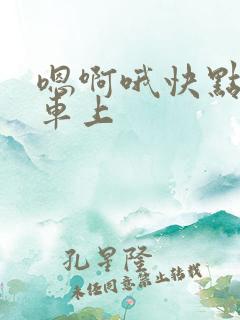 嗯啊哦快點
車上
孔星隆
未经同意禁止转载